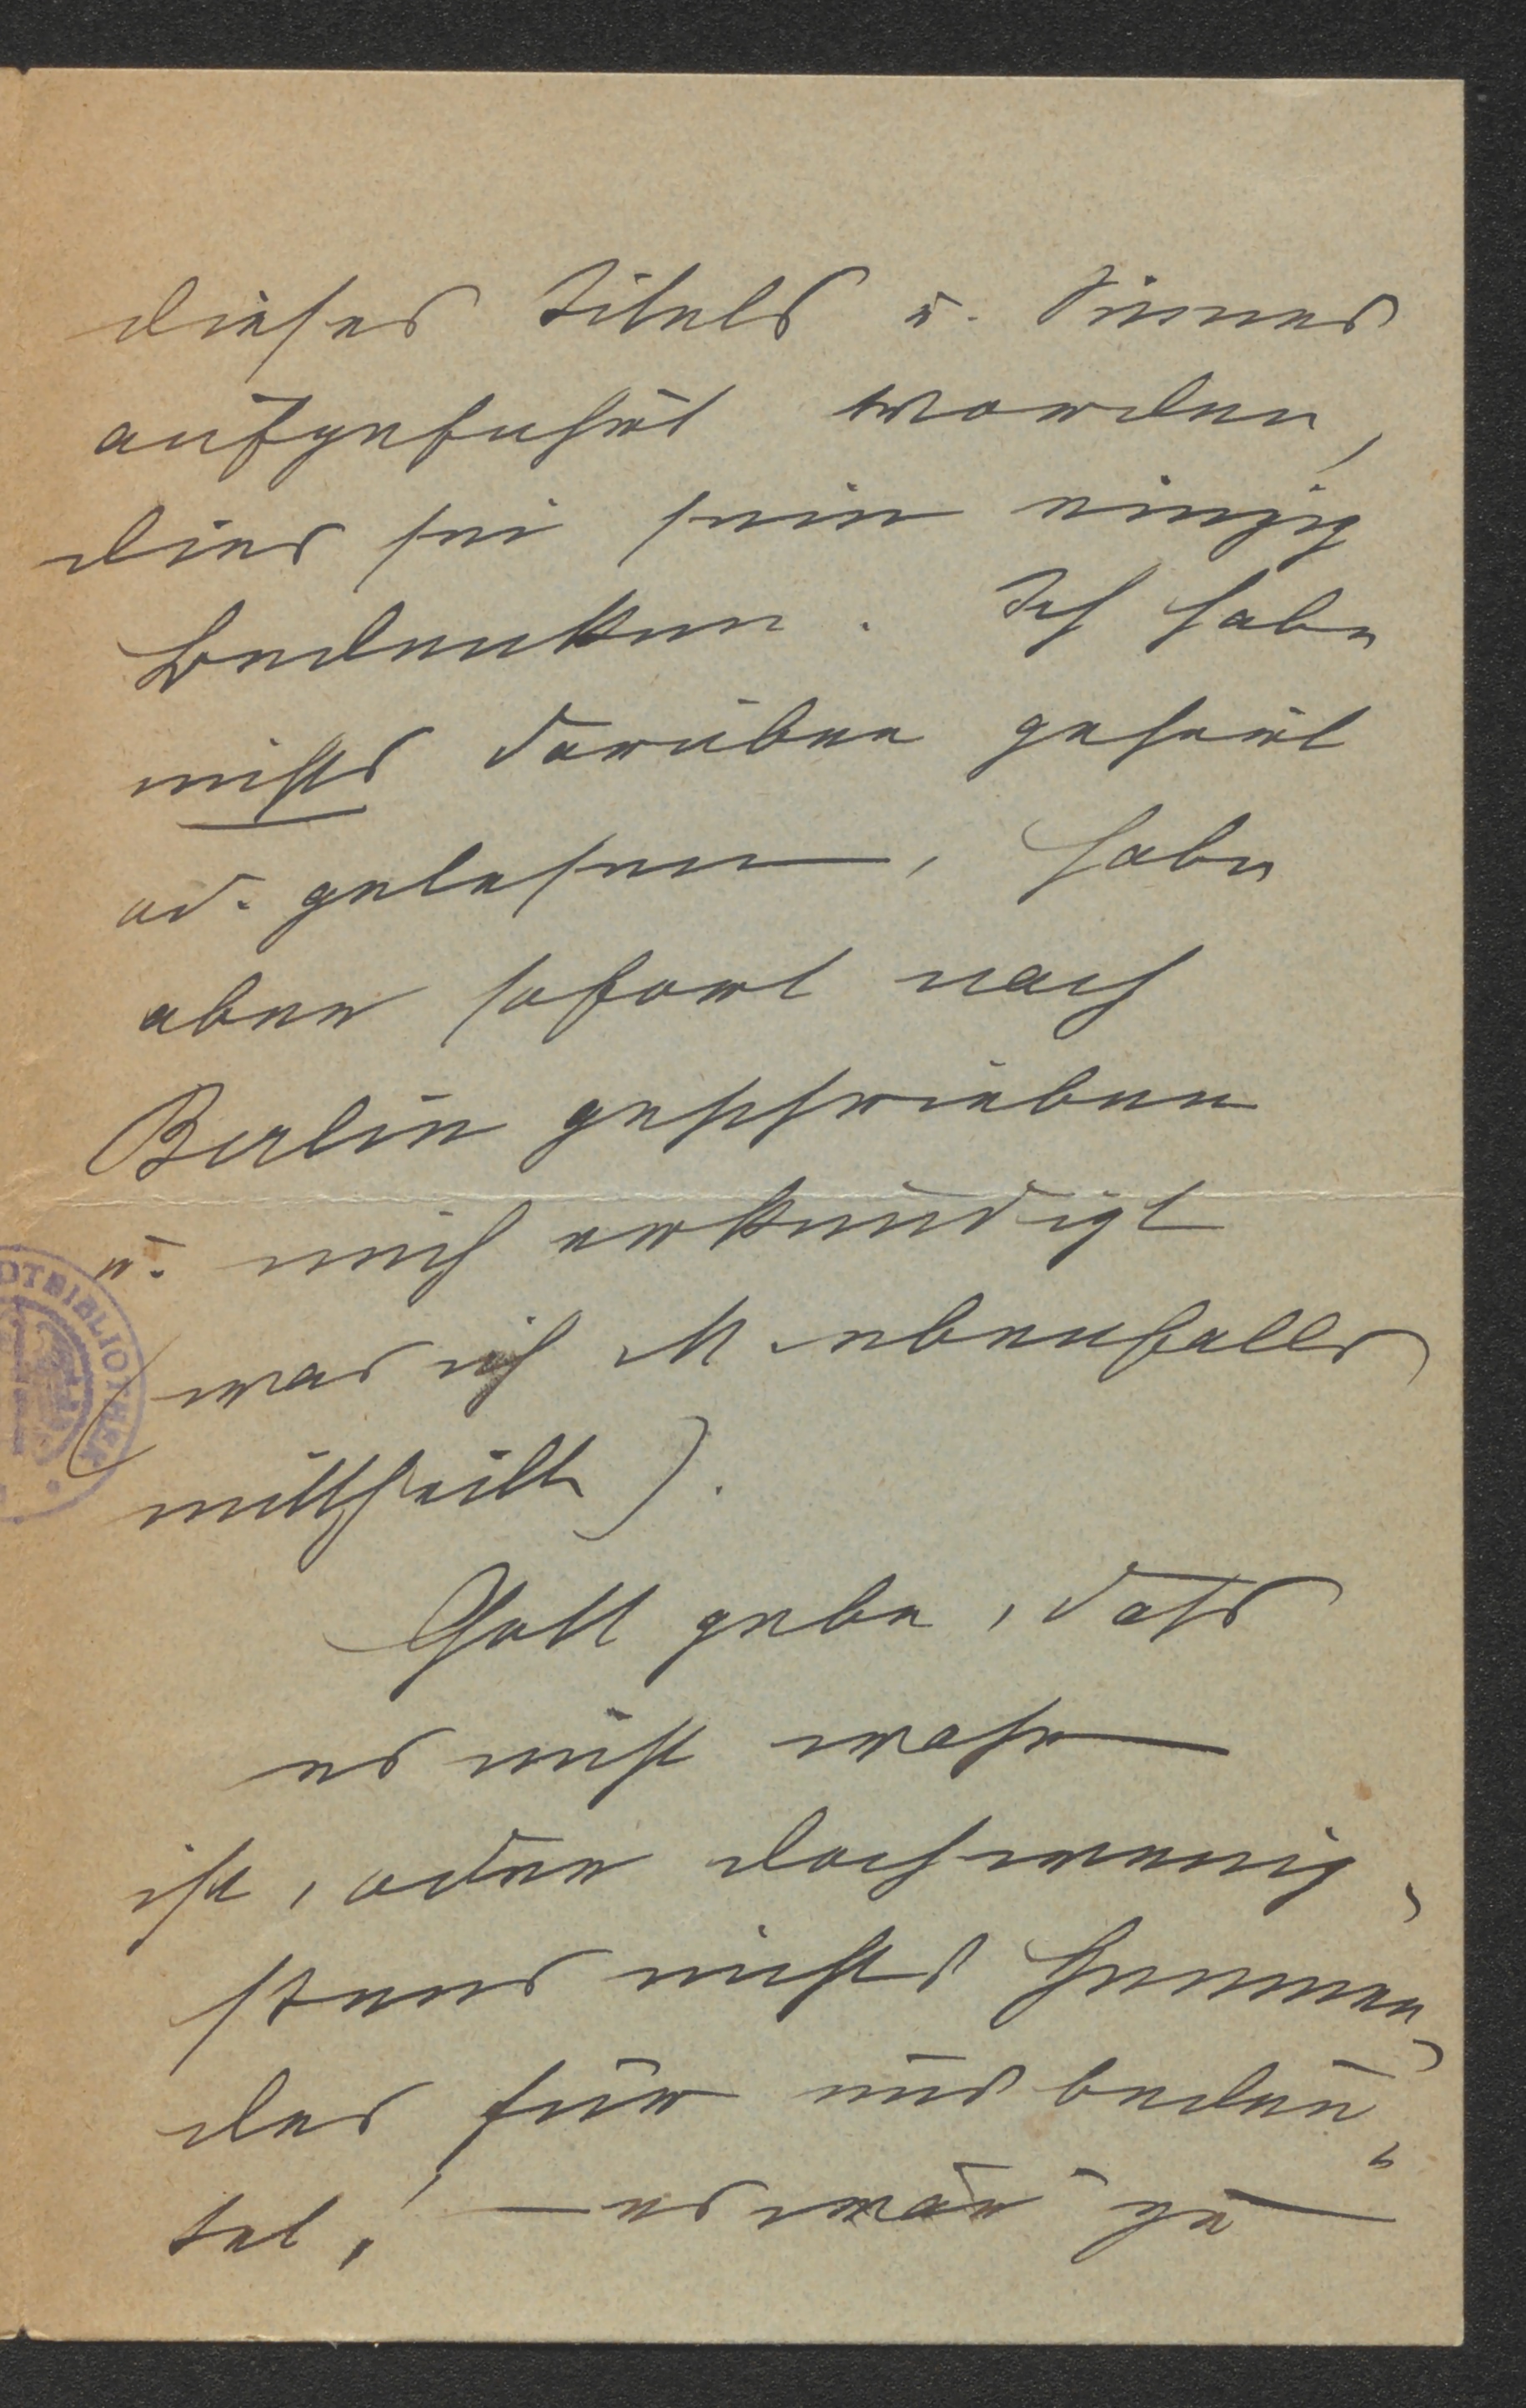 dieses Titels u. Sinnes
aufgeführt worden,
dies sei sein einzig
Bedenken. Ich habe
nichts darüber gehört
od. gelesen, habe
aber sofort nach
Berlin geschrieben
u. mich erkundigt
(was ich M ebenfalls
mittheilte).
Gott gebe, dass
es nicht wahr
ist, oder doch wenig-
stens nichts Hemmen-
des für uns bedeu-
tet! – es wär' zu